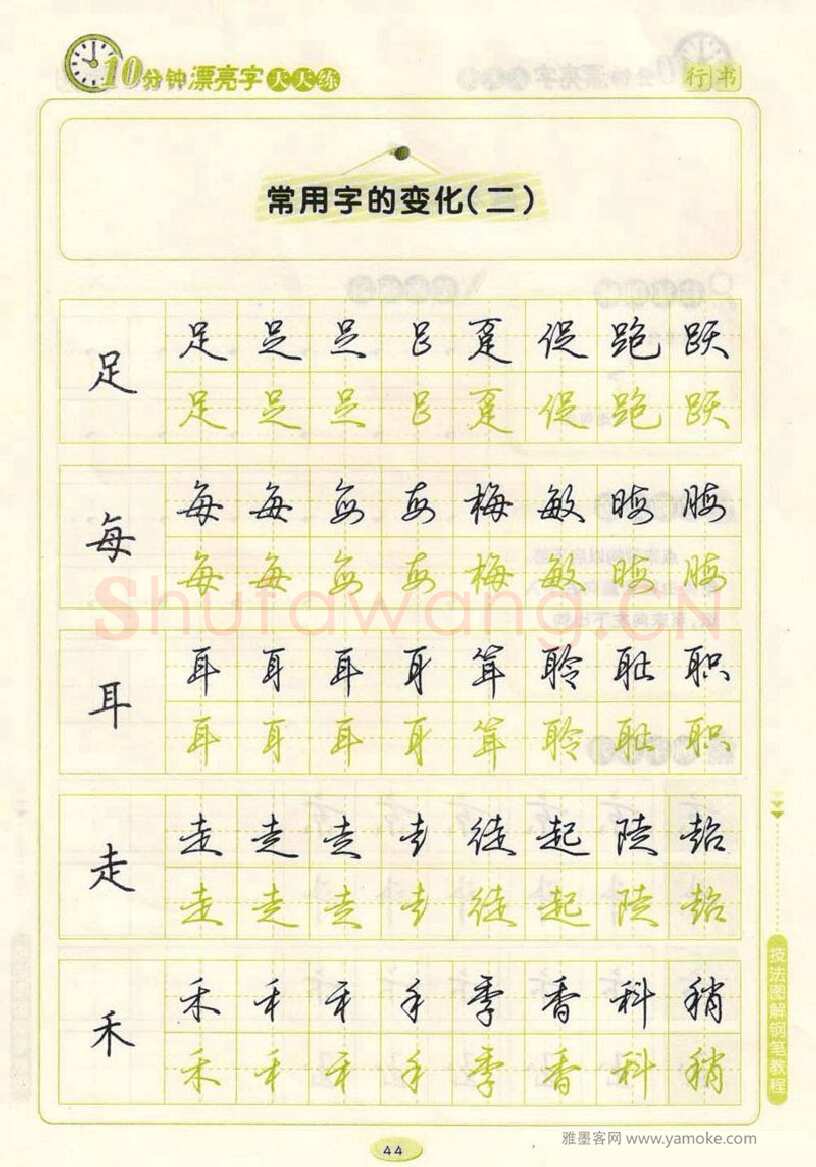 10分钟漂亮字天天练
行书
常用字的变化(二)
足 足 足 足 足 趸 促 跑 跃
足 足 足 足 趸 促 跑 跃
每 每 每 每 每 梅 敏 晦 脢
每 每 每 每 梅 敏 晦 脢
Shufawang.CN
耳 耳 耳 耳 耳 茸 聆 耻 职
耳 耳 耳 耳 茸 聆 耻 职
走 走 走 走 走 徒 起 陡 超
走 走 走 走 徒 起 陡 超
禾 禾 禾 禾 禾 季 香 科 稍
禾 禾 禾 禾 季 香 科 稍
技法图解钢笔教程
44
雅墨客网 www.yamoke.com